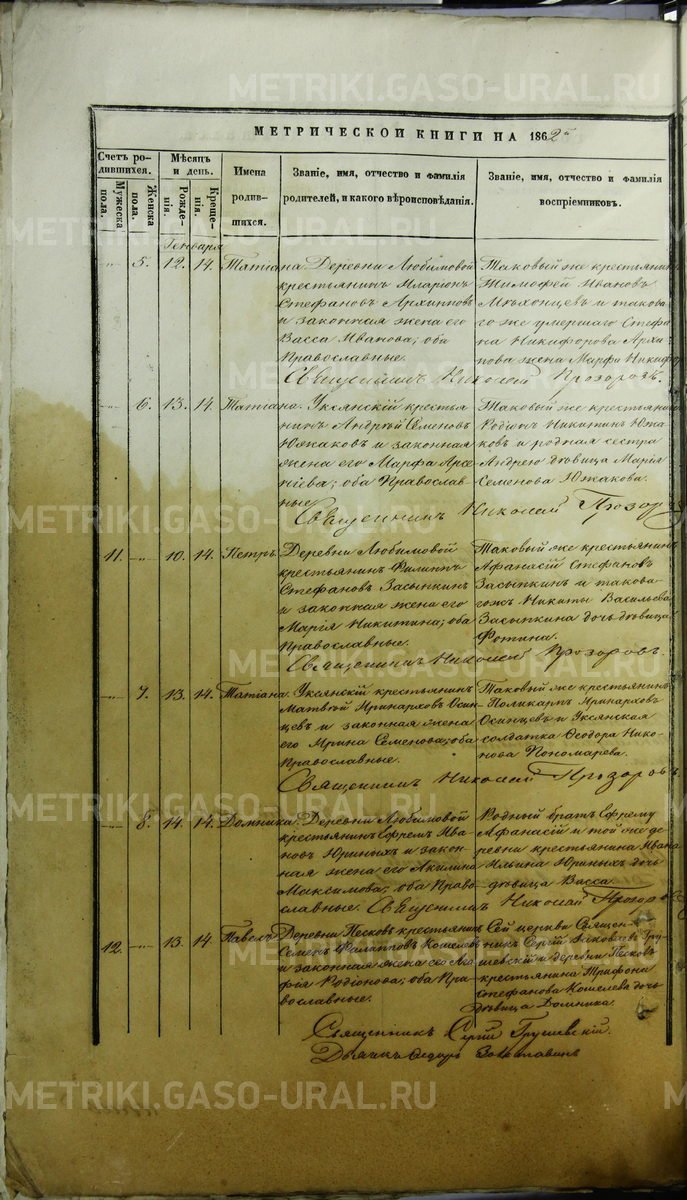 METRIKI.GASO-URAL.RU
МЕТРИЧЕСКОЙ КНИГИ НА 1862й
Счетъ родившихся.
Мужеска пола.
Женска пола.
Мѣсяцъ и день.
Рожденія.
Крещенія.
Имена родившихся.
Званіе, имя, отчество и фамилія родителей, и какого вѣроисповѣданія.
Званіе, имя, отчество и фамилія воспріемниковъ.
Генваря
" 5. 12. 14. Татіана.
Деревни Любимовой
крестьянинъ Иларіонъ
Стефановъ Архиповъ
и законная жена его
Васса Иванова; оба
Православные.
Таковый же крестьянинъ
Тимофей Ивановъ
Мѣхонцевъ и таковаго
же умершаго Стефана
Никифорова Архипова
жена Марфа
Священникъ Николай Прозоровъ.
" 6. 13. 14. Татіана.
Уксянскій крестья
нинъ Андрей Семеновъ
Южаковъ и законная
жена его Марфа Арсе
ніева; оба Православ
ные
Таковый же крестьянинъ
Родіонъ Никитинъ Южа
ковъ и родная сестра
Андрею дѣвица Марія
Семенова Южакова.
Священникъ Николай Прозоровъ
11. " 10. 14. Петръ.
Деревни Любимовой
крестьянинъ Филиппъ
Стефановъ Засыпкинъ
и законная жена его
Марія Никитина; оба
Православные.
Таковый же крестьянинъ
Афанасій Стефановъ
Засыпкинъ и таково
гожъ Никиты Васильева
Засыпкина дочь дѣвица
Фотина.
Священникъ Николай Прозоровъ.
" 7. 13. 14. Татіана.
Уксянскій крестьянинъ
Матвѣй Иринарховъ Осин
цевъ и законная жена
его Ирина Семенова; оба
Православные.
Таковый же крестьянинъ
Поликарпъ Иринарховъ
Осинцевъ и Уксянская
солдатка Ѳеодора Нико
нова Пономарева.
Священникъ Николай Прозоровъ.
" 8. 14. 14. Домника.
Деревни Любимовой
крестьянинъ Ефремъ Ива
новъ Юриныхъ и закон
ная жена его Акилина
Максимова; оба Право
славные.
Родный братъ Ефрему
Афанасій и той же де
ревни крестьянина Ивана
Ильина Юриныхъ дочь
дѣвица Васса
Священникъ Николай Прозоровъ
12. " 13. 14. Павелъ.
Деревни Песковъ крестьянинъ
Семенъ Филипповъ Кошелевъ
и законная жена его Ага
фія Родіонова; оба Пра
вославные.
Сей церкви Священ
никъ Сергій Іаковлевъ Гру
шевскій и деревни Песковъ
крестьянина Трифона
Стефанова Кошелева дочь
дѣвица Домника.
Священникъ Сергій Грушевскій.
Дьячекъ Ѳедоръ